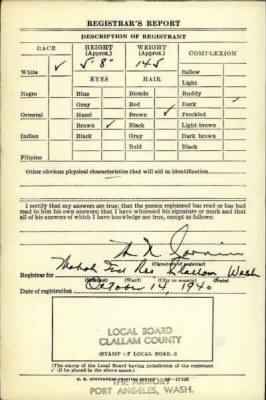 REGISTRAR'S REPORT
DESCRIPTION OF REGISTRANT
RACE
HEIGHT (Approx.)
WEIGHT (Approx.)
COMPLEXION
White ✓
5' 8"
145
Sallow
EYES
HAIR
Light
Negro
Blue
Blonde
Ruddy
Gray
Red
Dark ✓
Oriental
Hazel
Brown ✓
Freckled
Brown ✓
Black
Light brown
Indian
Black
Gray
Dark brown
Bald
Black
Filipino
Other obvious physical characteristics that will aid in identification
I certify that my answers are true; that the person registered has read or has had
read to him his own answers; that I have witnessed his signature or mark and that
all of his answers of which I have knowledge are true, except as follows:
(Signature of registrar)
Registrar for Makah Res Clallam Wash
(Precinct) (Ward) (City or county) (State)
Date of registration October 14, 1940
LOCAL BOARD
CLALLAM COUNTY
(STAMP OF LOCAL BOARD)
(The stamp of the Local Board having jurisdiction of the registrant
shall be placed in the above space.)
THE ARMORY
PORT ANGELES, WASH.